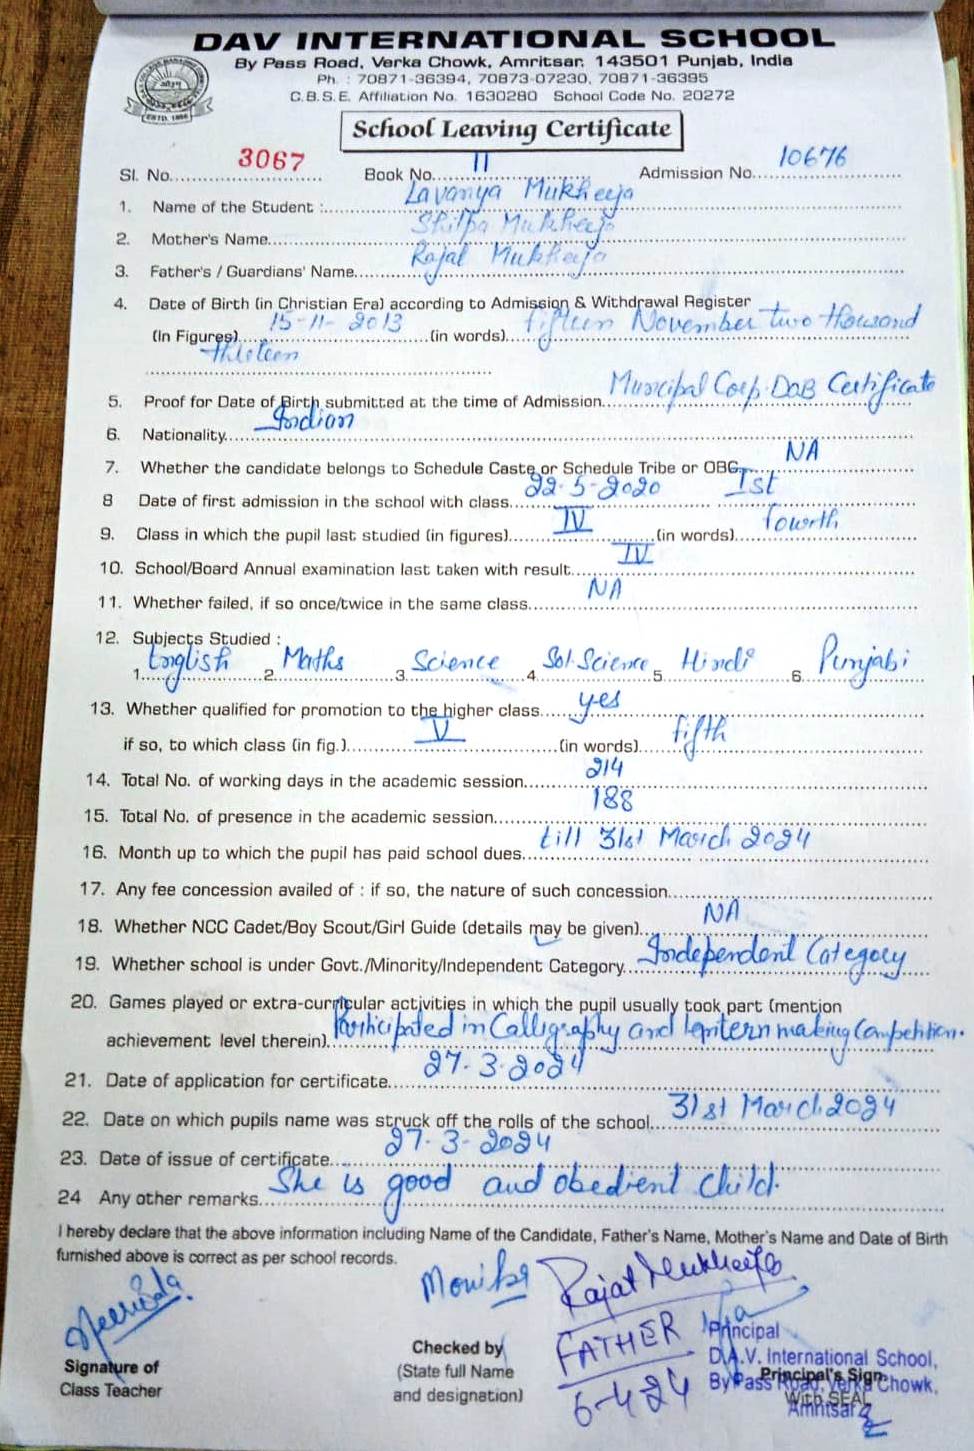 DAV INTERNATIONAL SCHOOL
By Pass Road, Verka Chowk, Amritsar. 143501 Punjab, India
Ph. : 70871-36394, 70873-07230, 70871-36395
C.B.S.E. Affiliation No. 1630280 School Code No. 20272
ESTD. 1886
School Leaving Certificate
Sl. No. 3067 Book No. 11 Admission No. 10676
1. Name of the Student : Lavanya Mukheeja
2. Mother's Name Shilpa Mukheeja
3. Father's / Guardians' Name Rajat Mukheeja
4. Date of Birth (in Christian Era) according to Admission & Withdrawal Register
(In Figures) 15-11-2013 (in words) fifteen November two thousand
thirteen
5. Proof for Date of Birth submitted at the time of Admission Municipal Corp. DOB Certificate
6. Nationality Indian
7. Whether the candidate belongs to Schedule Caste or Schedule Tribe or OBC NA
8 Date of first admission in the school with class 22-5-2020 Ist
9. Class in which the pupil last studied (in figures) IV (in words) fourth
10. School/Board Annual examination last taken with result IV
11. Whether failed, if so once/twice in the same class NA
12. Subjects Studied :
1. English 2. Maths 3. Science 4 Sst. Science 5 Hindi 6. Punjabi
13. Whether qualified for promotion to the higher class yes
if so, to which class (in fig.) V (in words) fifth
14. Total No. of working days in the academic session 214
15. Total No. of presence in the academic session 188
16. Month up to which the pupil has paid school dues till 31st March 2024
17. Any fee concession availed of : if so, the nature of such concession
18. Whether NCC Cadet/Boy Scout/Girl Guide (details may be given) NA
19. Whether school is under Govt./Minority/Independent Category Independent Category
20. Games played or extra-curricular activities in which the pupil usually took part (mention
achievement level therein) Participated in Calligraphy and lentern making Competition.
21. Date of application for certificate 27-3-2024
22. Date on which pupils name was struck off the rolls of the school 31st March 2024
23. Date of issue of certificate 27-3-2024
24 Any other remarks She is good and obedient child.
I hereby declare that the above information including Name of the Candidate, Father's Name, Mother's Name and Date of Birth
furnished above is correct as per school records.
Monika Rajat Mukheeja
FATHER
6-4-24
Signature of
Class Teacher
Checked by
(State full Name
and designation)
Principal
D.A.V. International School,
By Pass Road, Verka Chowk,
Amritsar
Principal's Sign.
With SEAL